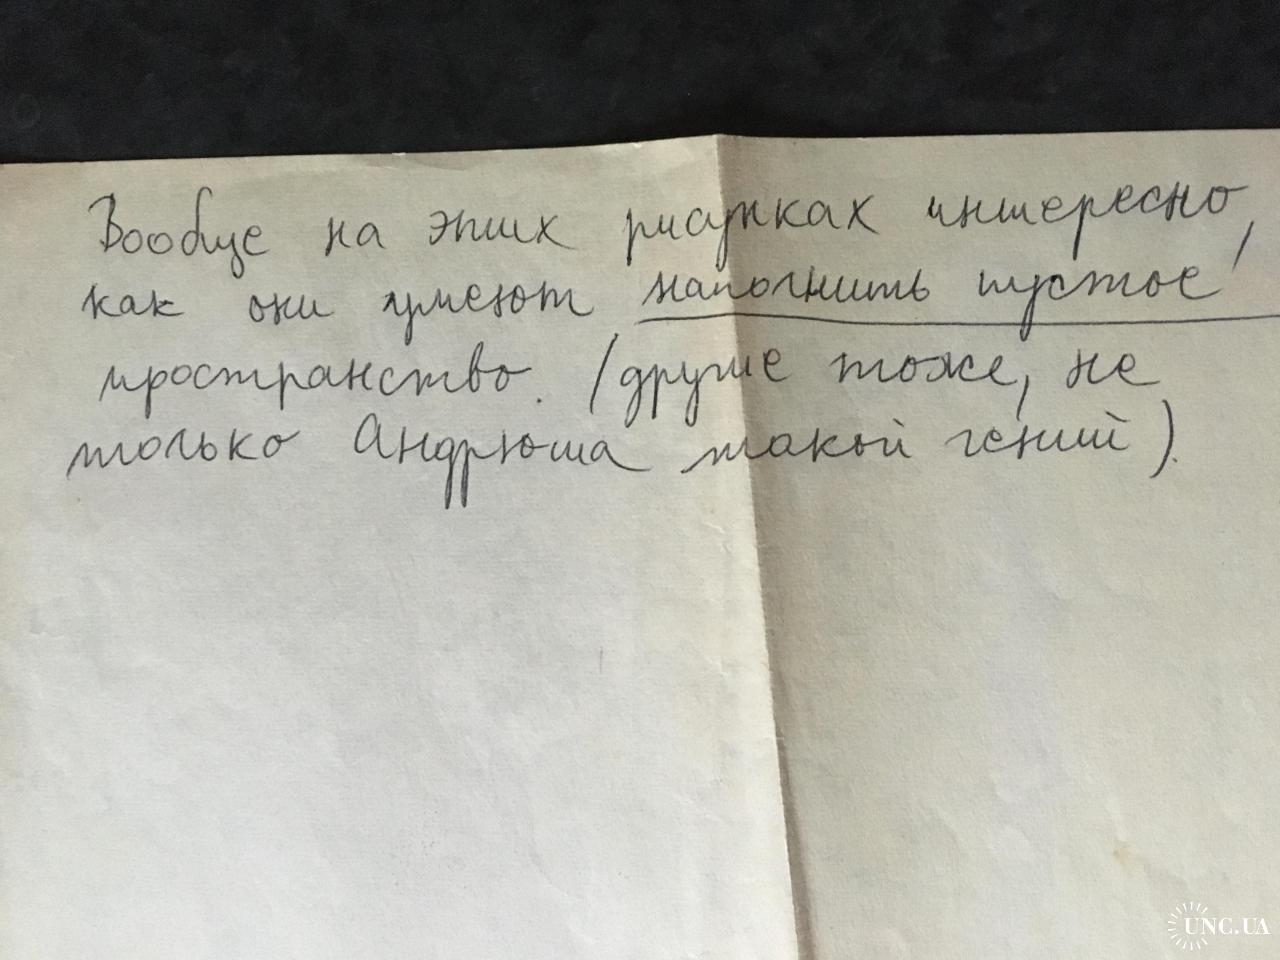 Вообще на этих рисунках интересно,
как они умеют наполнить пустое
пространство. (другие тоже, не
только Андрюша такой гений).
UNC.UA